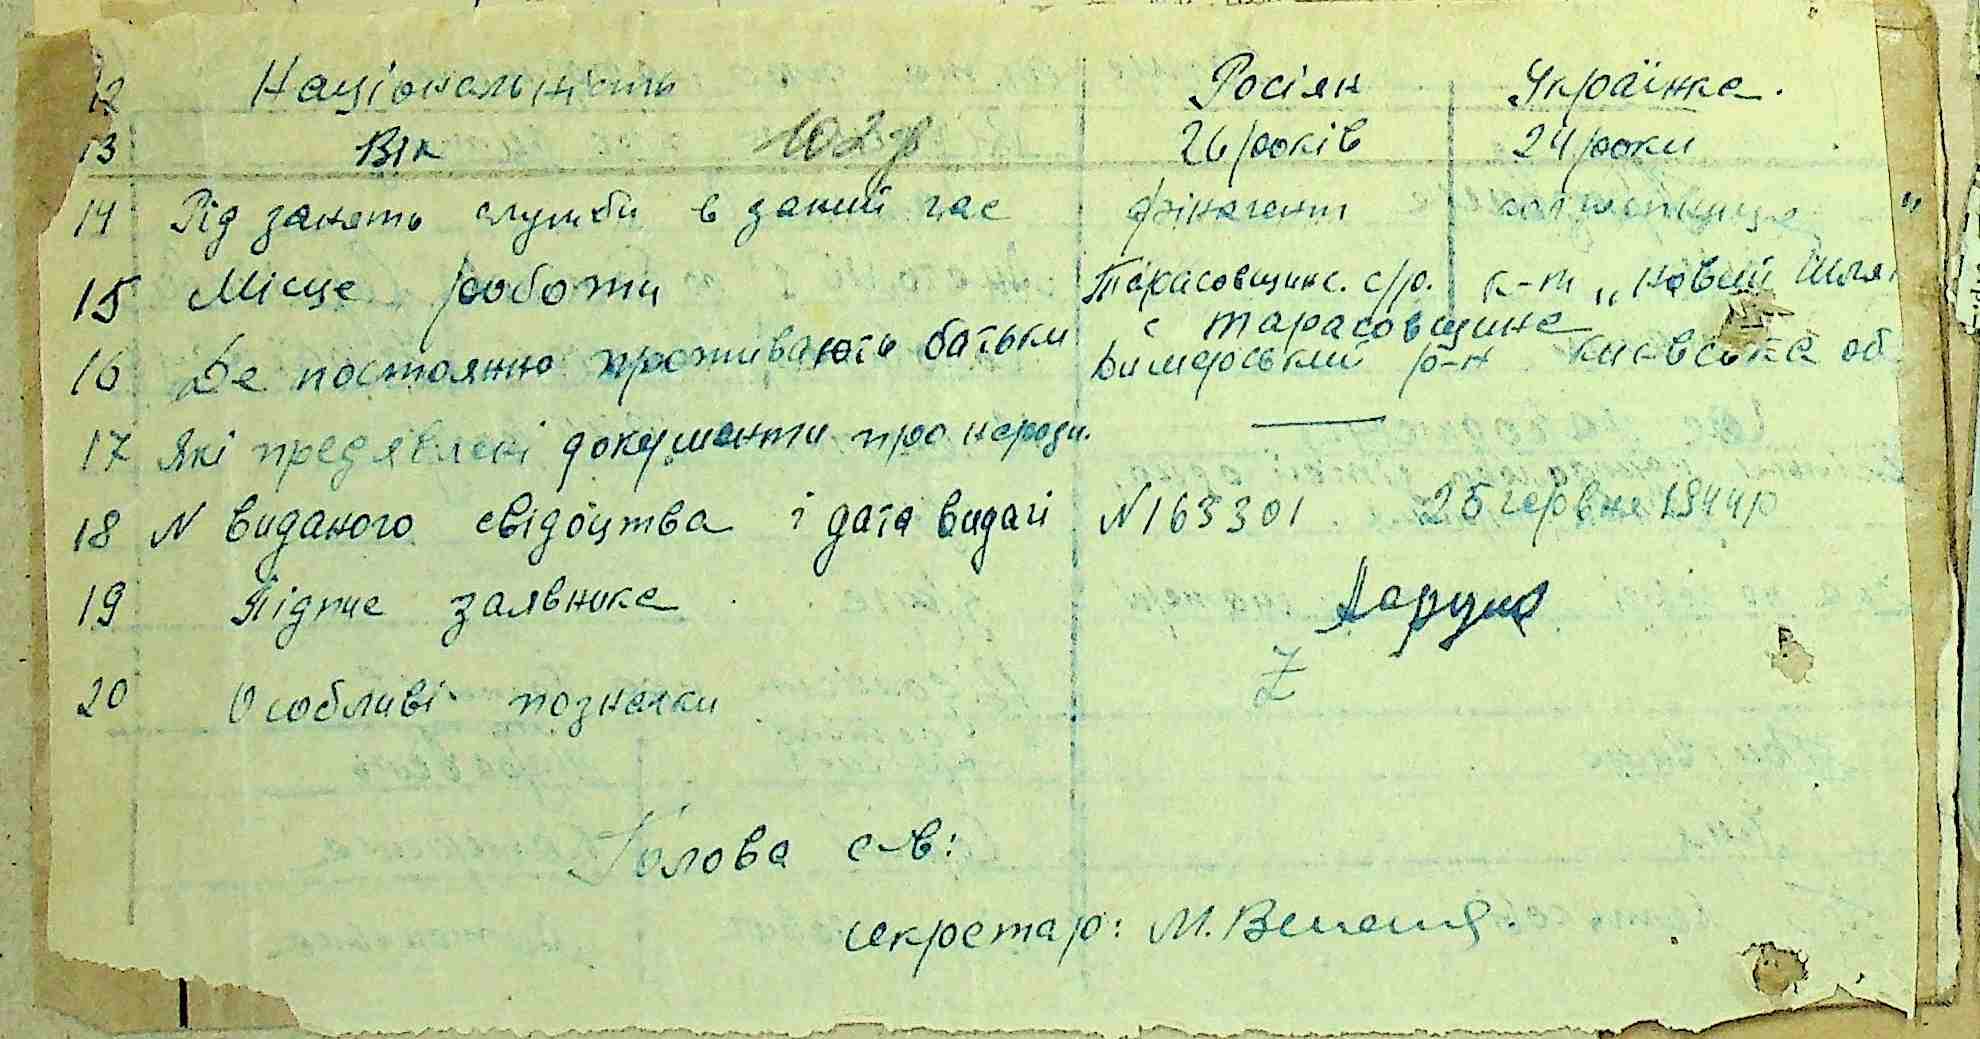 12 Національність Росіян Українка.
13 Вік 26 років 24 роки
14 Рід занять служби в даний час фінагент колгоспниця
15 Місце роботи Тарасовщинс. с/р. к-т „Новий Шлях"
с Тарасовщина
16 Де постоянно проживають батьки Димерський р-н Київська об
17 Які предявлені документи про народж. —
18 N виданого свідоцтва і дата видачі N 163301 25 червня 1944р
19 Підпис заявника
20 Особливі позначки Z
Голова с-в:
секретар: М.